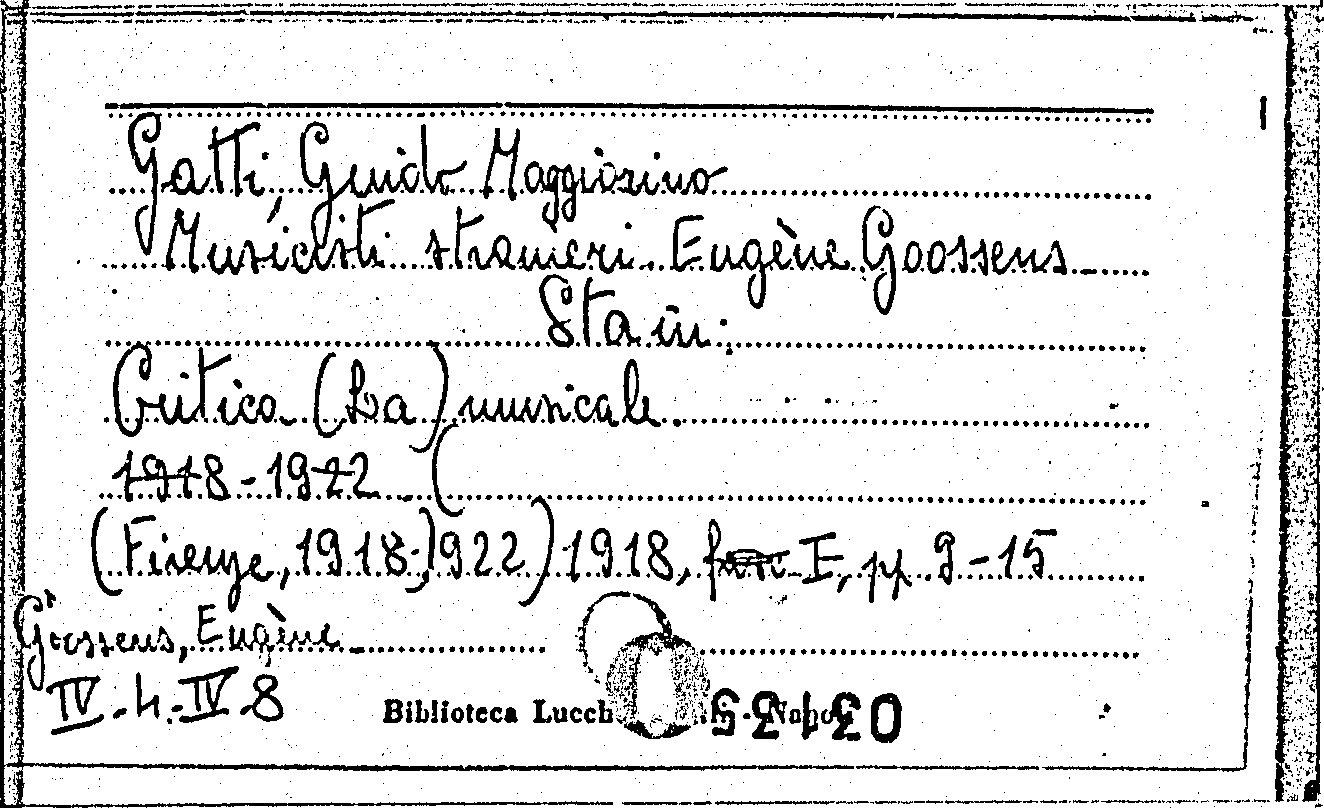 Gatti, Guido Maggiorino
Musicisti stranieri. Eugène Goossens
Sta in:
Critica (La) musicale.
1918-1922 (
(Firenze, 1918-1922) 1918, fasc I, pp 9-15
Goossens, Eugène
IV-4-IV-8
Biblioteca Lucch